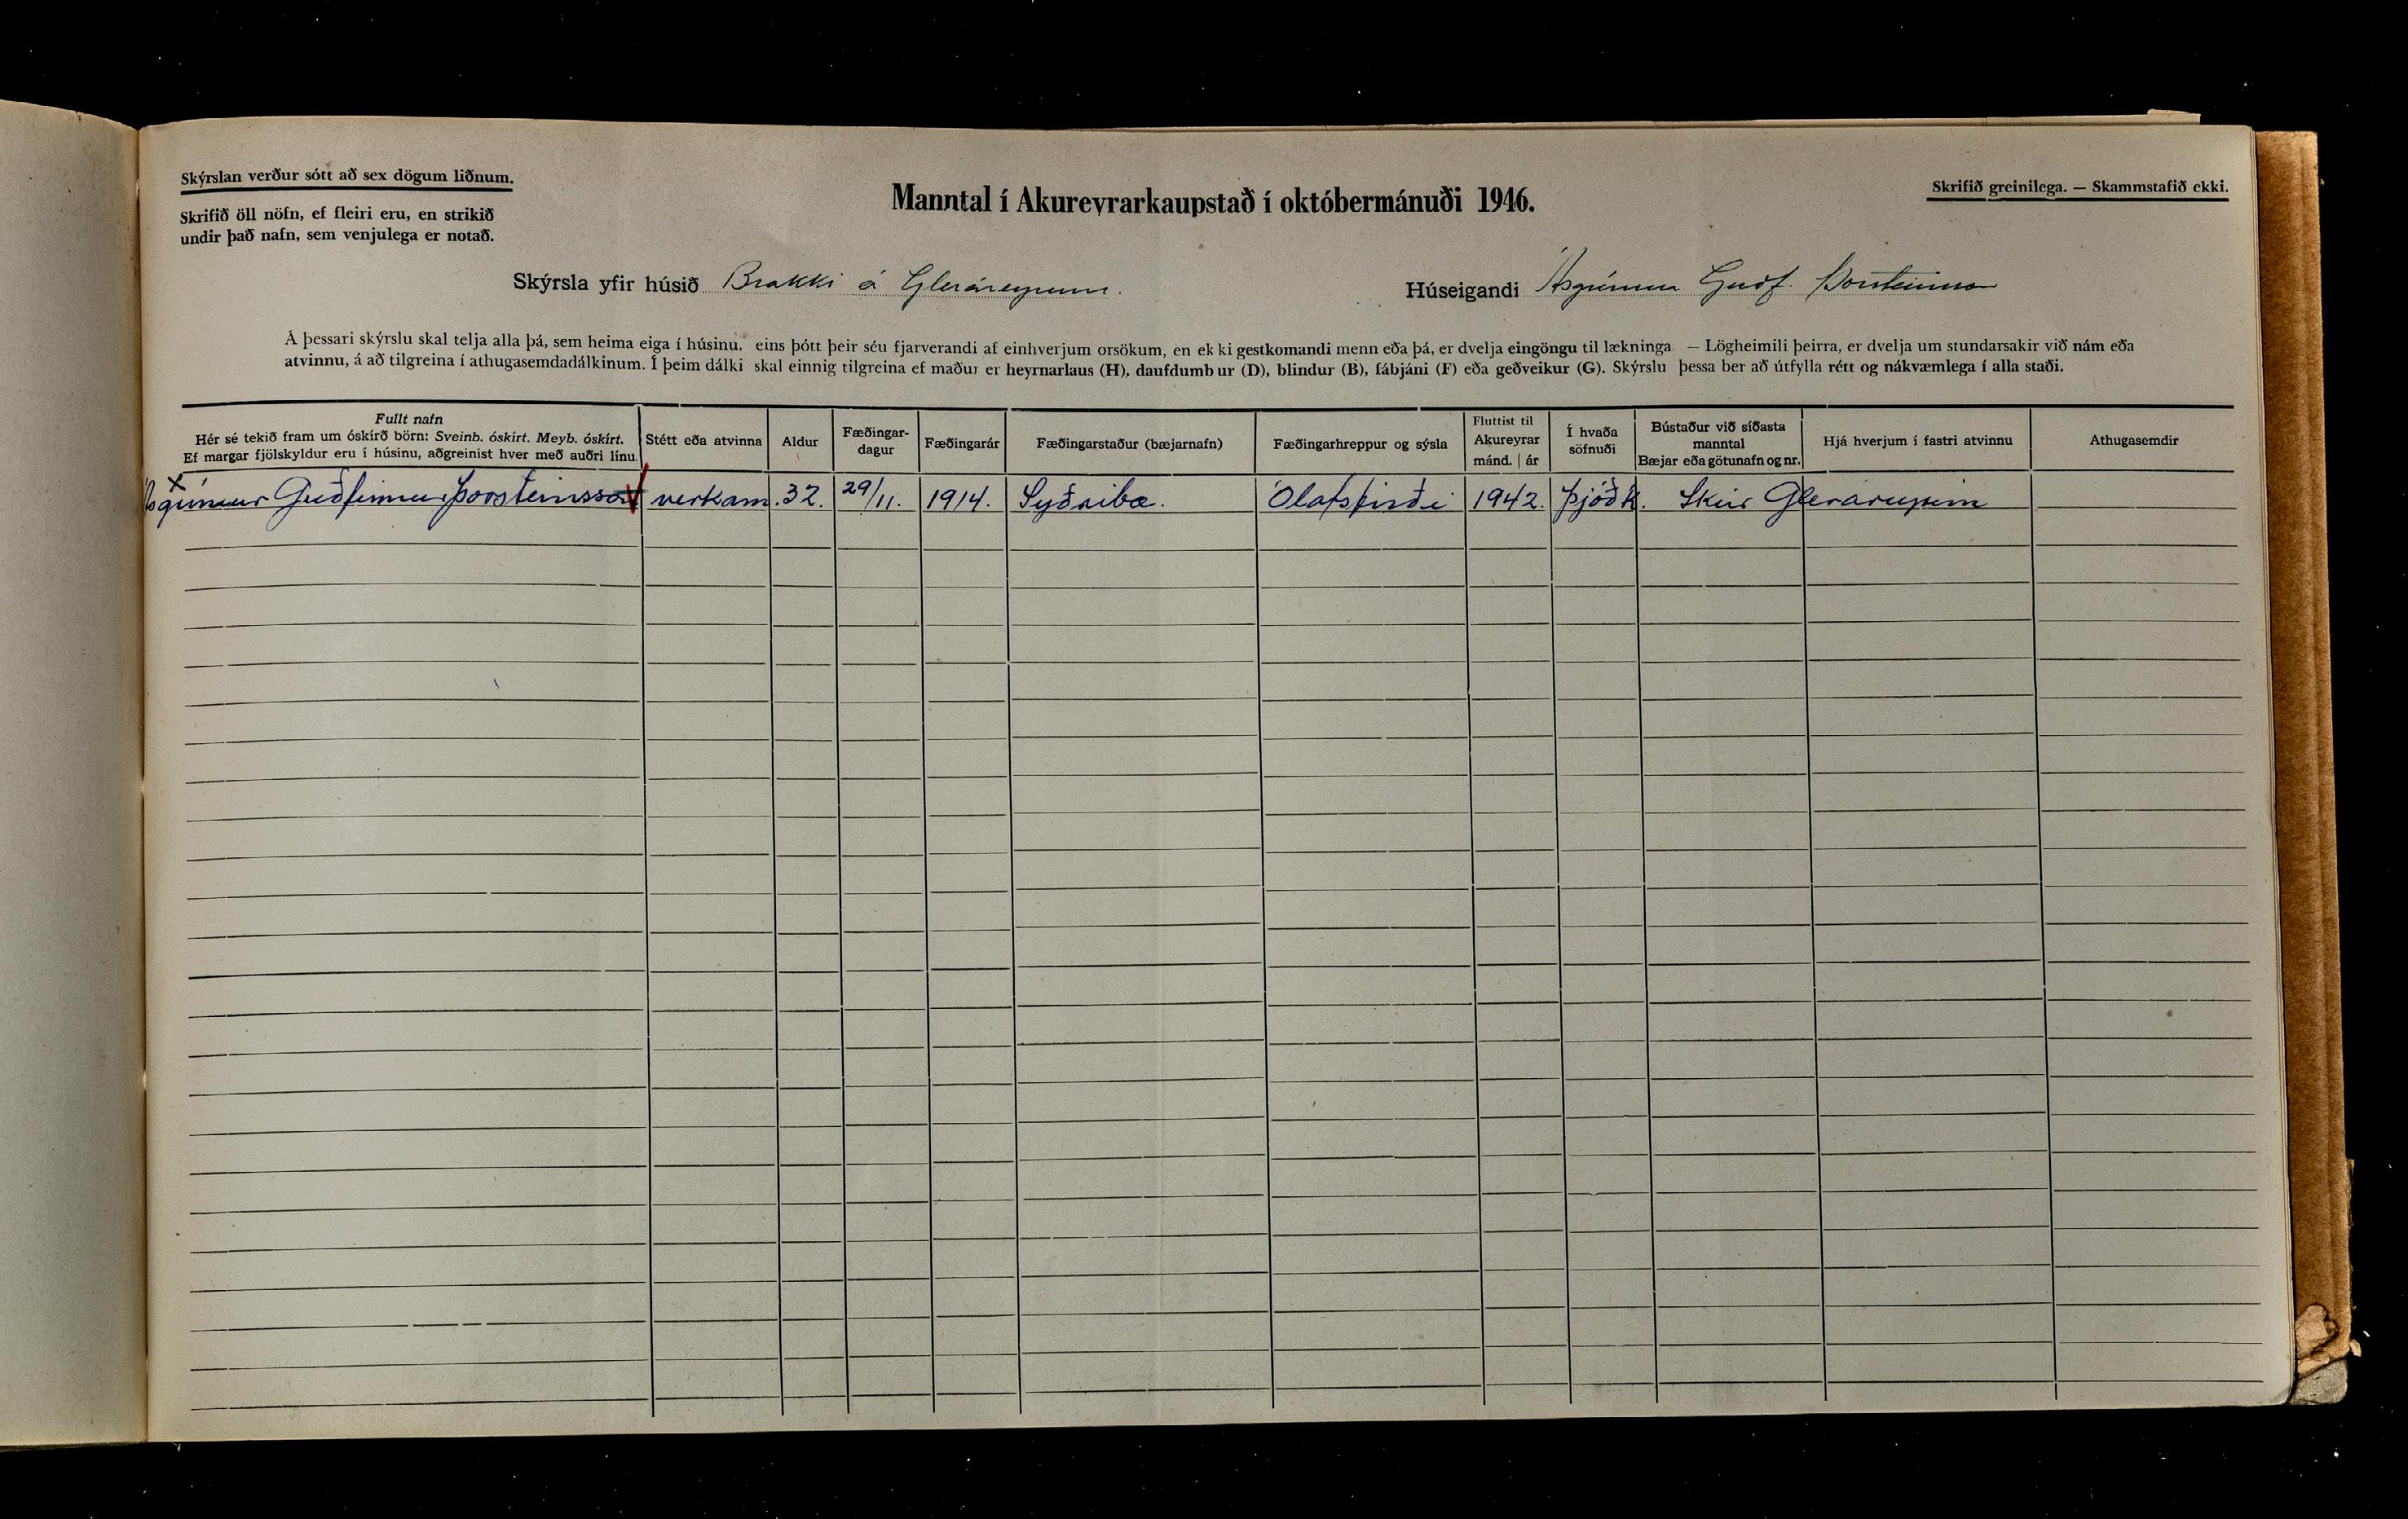 Skýrslan verður sótt að sex dögum liðnum.
Skrifið öll nöfn, ef fleiri eru, en strikið
undir það nafn, sem venjulega er notað.
Manntal í Akureyrarkaupstað í októbermánuði 1946.
Skrifið greinilega. — Skammstafið ekki.
Skýrsla yfir húsið Brakki á Gleráreyrum.
Húseigandi Ásgrímur Guðf. Þorsteinsson
Á þessari skýrslu skal telja alla þá, sem heima eiga í húsinu, eins þótt þeir séu fjarverandi af einhverjum orsökum, en ekki gestkomandi menn eða þá, er dvelja eingöngu til lækninga. — Lögheimili þeirra, er dvelja um stundarsakir við nám eða
atvinnu, á að tilgreina í athugasemdadálkinum. Í þeim dálki skal einnig tilgreina ef maður er heyrnarlaus (H), daufdumbur (D), blindur (B), fábjáni (F) eða geðveikur (G). Skýrslu þessa ber að útfylla rétt og nákvæmlega í alla staði.
Fullt nafn
Hér sé tekið fram um óskírð börn: Sveinb. óskírt. Meyb. óskírt.
Ef margar fjölskyldur eru í húsinu, aðgreinist hver með auðri línu.
Stétt eða atvinna
Aldur
Fæðingar-
dagur
Fæðingarár
Fæðingarstaður (bæjarnafn)
Fæðingarhreppur og sýsla
Fluttist til
Akureyrar
mánd. | ár
Í hvaða
söfnuði
Bústaður við síðasta
manntal
Bæjar eða götunafn og nr.
Hjá hverjum í fastri atvinnu
Athugasemdir
Ásgrímur Guðfinnur Þorsteinsson verkam. 32. 29/11. 1914. Syðribæ. Ólafsfirði 1942. Þjóðk. Skúr Gleráreyrum